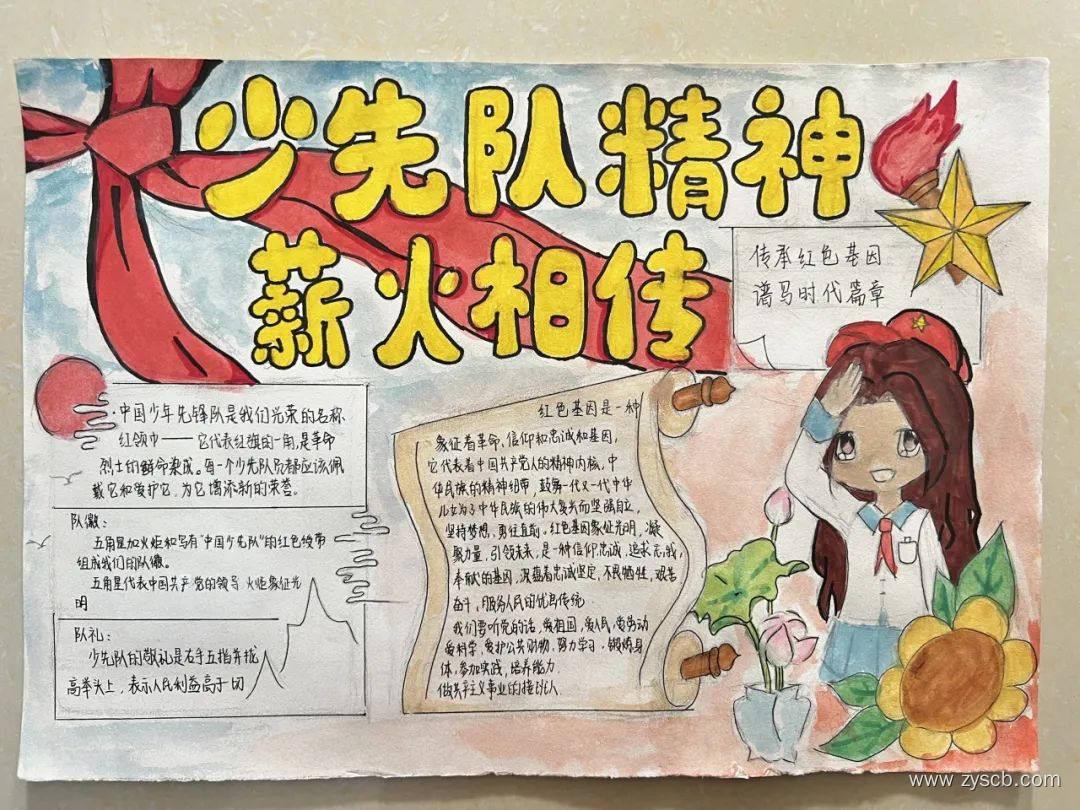 少先队精神
薪火相传
传承红色基因
谱写时代篇章
·中国少年先锋队是我们光荣的名称
红领巾——它代表红旗的一角,是革命
烈士的鲜血染成。每一个少先队员都应该佩
戴它和爱护它,为它增添新的荣誉。
队徽:
五角星加火炬和写有“中国少先队”的红色绶带
组成我们的队徽。
五角星代表中国共产党的领导 火炬象征光
明
队礼:
少先队的敬礼是右手五指并拢
高举头上,表示人民利益高于一切
红色基因是一种
象征着革命、信仰和忠诚和基因,
它代表着中国共产党人的精神内核,中
华民族的精神纽带,鼓舞一代又一代中华
儿女为了中华民族的伟大复兴而坚强自立,
坚持梦想,勇往直前。红色基因象征光明,凝
聚力量,引领未来,是一种信仰忠诚,追求无我,
奉献的基因,深蕴着忠诚坚定,不畏牺牲,艰苦
奋斗,服务人民的优良传统.
我们要听党的话,爱祖国,爱人民,爱劳动
爱科学,爱护公共财物,努力学习,锻炼身
体,参加实践,培养能力.
做共产主义事业的接班人
www.zyscb.com